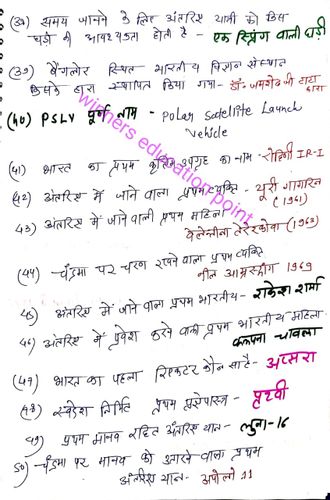 (38) समय जानने के लिए अंतरिक्ष यात्री को किस
घड़ी की आवश्यकता होती है - एक स्प्रिंग वाली घड़ी
(39) बैंगलोर स्थित भारतीय विज्ञान संस्थान
किसके द्वारा स्थापित किया गया - डॉ. जमशेद जी टाटा
द्वारा
(40) PSLV पूर्ण नाम - Polar Satellite Launch
Vehicle
(41) भारत का प्रथम कृत्रिम उपग्रह का नाम - रोहिणी IR-I
(42) अंतरिक्ष में जाने वाला प्रथम व्यक्ति - यूरी गागरिन
(1961)
43) अंतरिक्ष में जाने वाली प्रथम महिला
वेलेन्तीना तेरेस्कोवा (1963)
(44) चंद्रमा पर चरण रखने वाला प्रथम व्यक्ति
नील आर्मस्ट्रांग 1969
45) अंतरिक्ष में जाने वाला प्रथम भारतीय - राकेश शर्मा
46) अंतरिक्ष में प्रवेश करने वाली प्रथम भारतीय महिला
कल्पना चावला
(47) भारत का पहला रिएक्टर कौन सा है - अप्सरा
(48) स्वदेश निर्मित प्रथम प्रक्षेपास्त्र - पृथ्वी
49) प्रथम मानव रहित अंतरिक्ष यान - लुना-16
50) चंद्रमा पर मानव को उतारने वाला प्रथम
अंतरिक्ष यान - अपोलो 11
winners education point